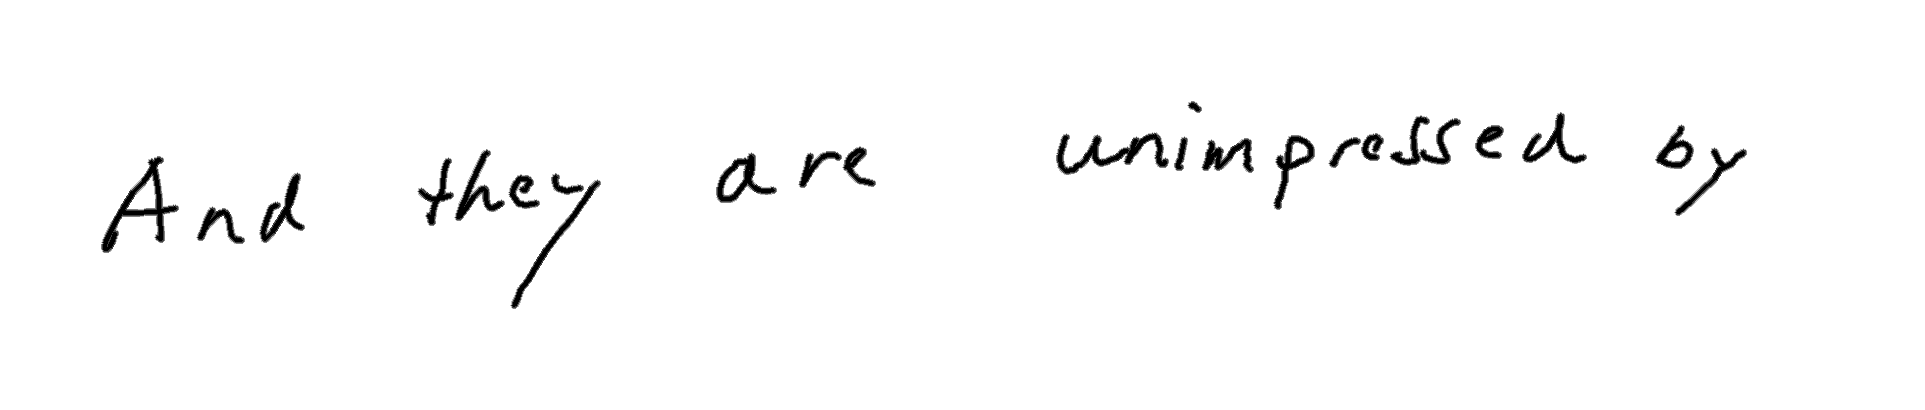 And they are unimpressed by